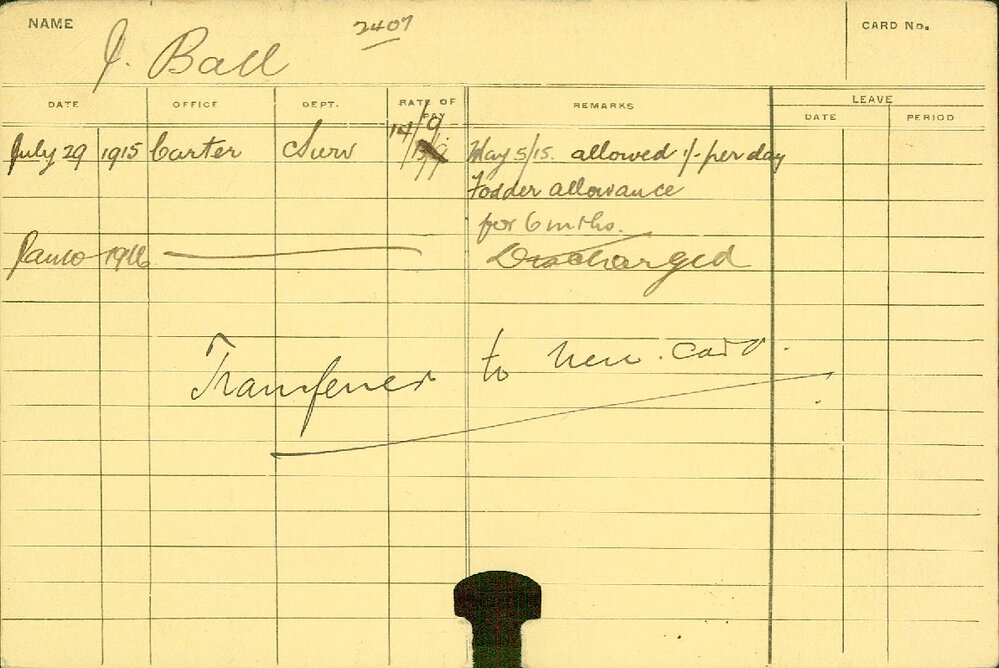 NAME
2407
J. Ball
CARD No.
DATE OFFICE DEPT. RATE OF PAY REMARKS LEAVE
DATE PERIOD
14/9
July 29 1915 Carter Surv May 5/15. allowed 1/- per day
Fodder allowance
for 6 mths.
Jan 10 1916 Discharged
Transferred to new card.